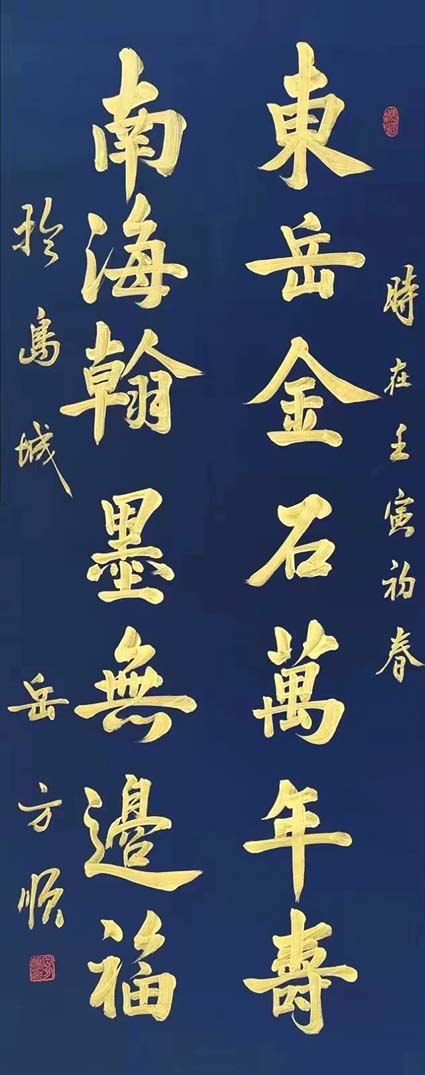 時在壬寅初春
東岳金石萬年壽
南海翰墨無邊福
於島城 岳方順